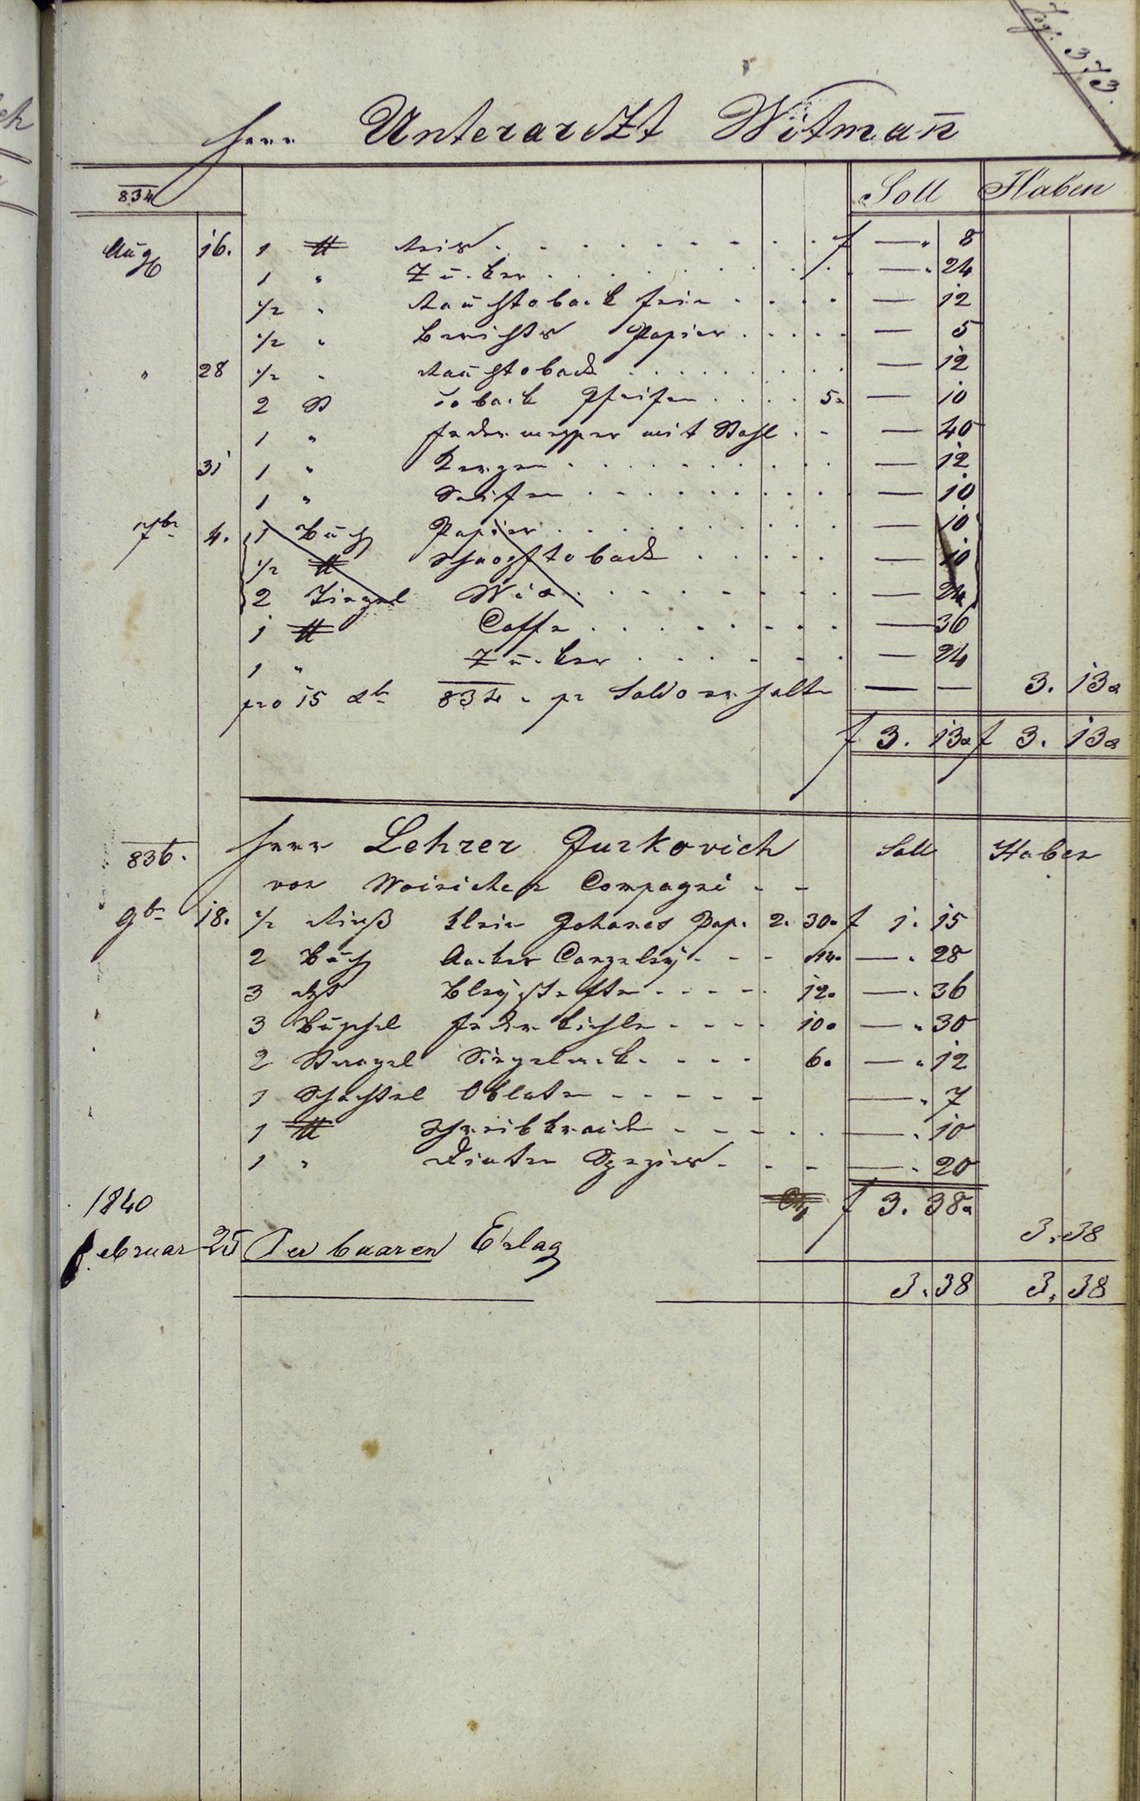 Pag: 373.
Herr Unterarckt Witman̄
834 Soll Haben
Aug 16. 1 ℔ Reis . . . . f — . 8
1 " Zucker . . . . — . 24
1/2 " Rauchtoback fein . . . . — 12
1/2 " Papier . . . . — 5
" 28 1/2 " Rauchtoback . . . . — 12
2 St Toback Pfeifen . . . . 5 — 10
1 " Federmesser mit Stahl . . — 40
31 1 " Kerzen . . . . — 12
1 " Seifen . . . . — 10
7br 4. 1 Buch Papier . . . . — 10
1/2 ℔ Toback . . . . — 10
2 Tiegel Wix . . . . — 24
1 ℔ Caffe . . . . — 36
1 " Zucker . . . . — 24
pro 15 834 pr Saldo erhalten — — 3. 13
f 3. 13 f 3. 13
836. Herr Lehrer Jurkovich Soll Haben
von Compagni - -
9br 18. 1/2 Rieß klein Johanes Pap. 2. 30 f 1. 15
2 Buch Canzeley - - - 14 — . 28
3 St Bleystifte - - - - 12 — . 36
3 Büschel Federkiehle - - - - 10 — . 30
2 Stangel Siegelack - - - - 6 — . 12
1 Schachtel Oblaten - - - - - — . 7
1 ℔ Schreibkreide - - - — . 10
1 " Dinten Spezies - - - — . 20
f 3. 38
1840
Februar 25 Per baaren Erlag 3. 38
3. 38 3. 38